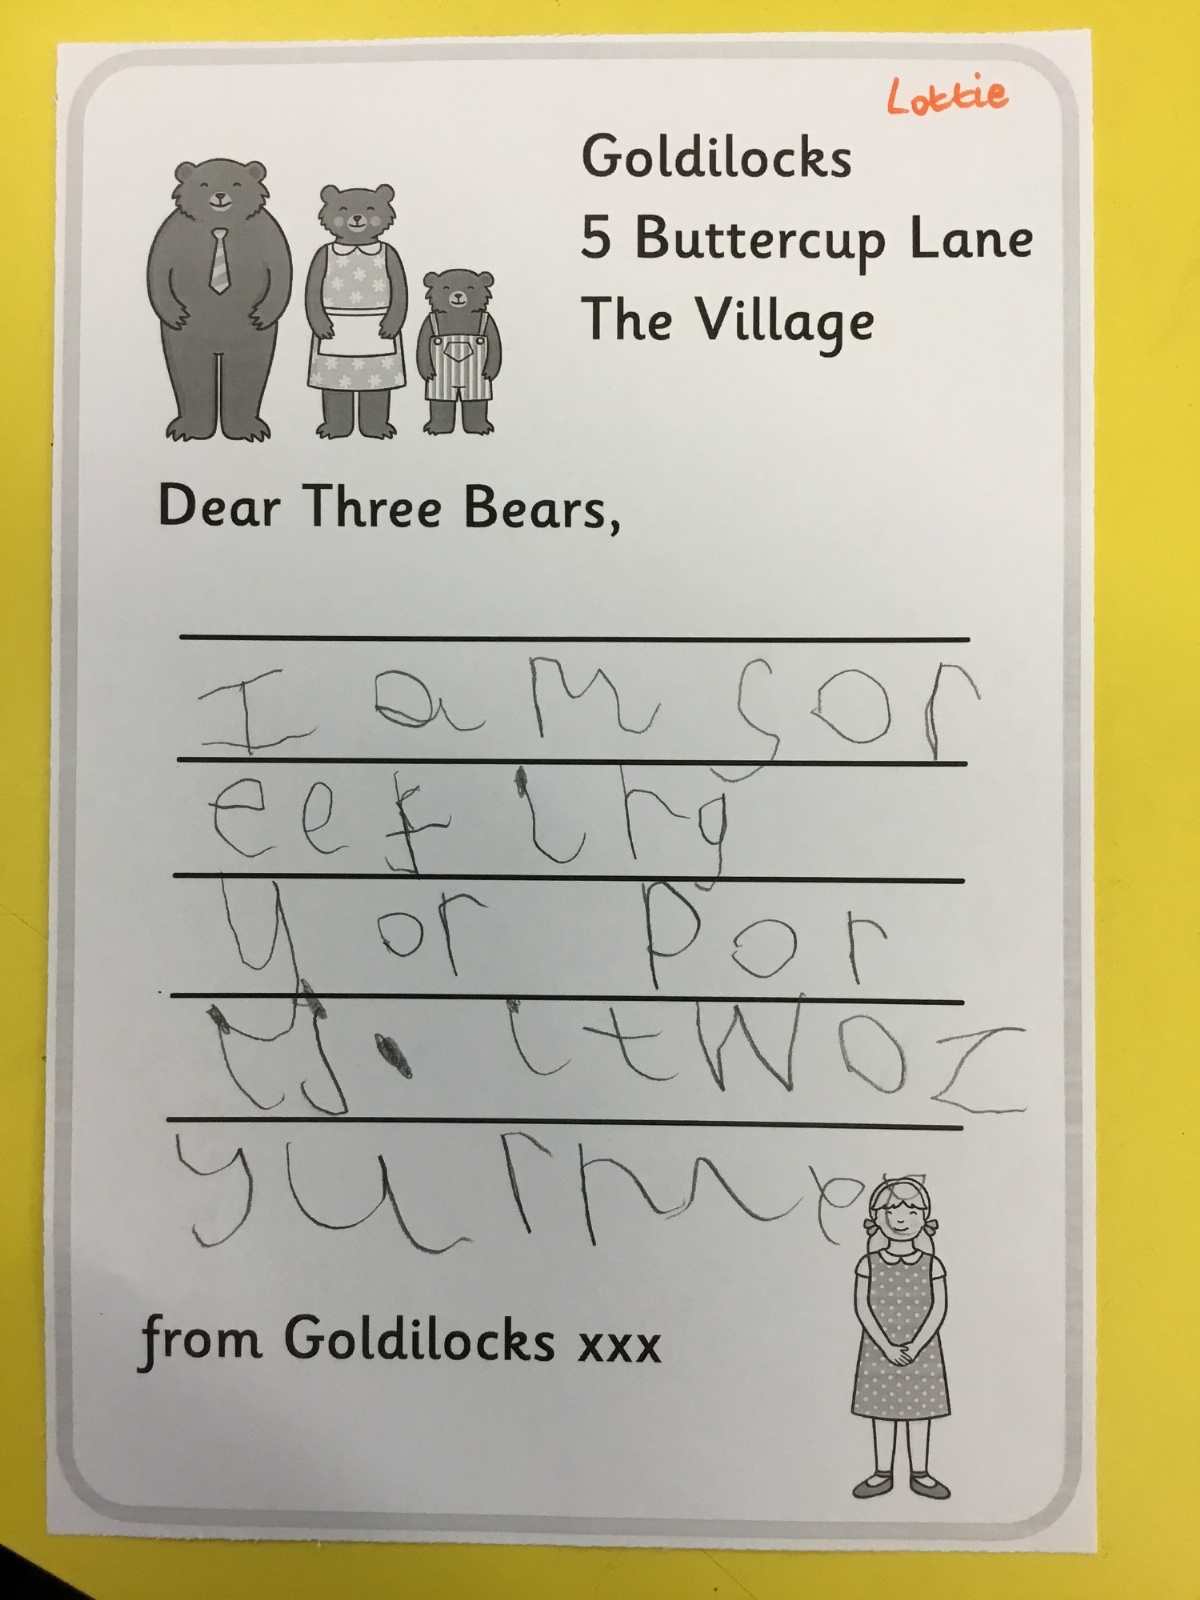 Lottie
Goldilocks
5 Buttercup Lane
The Village
Dear Three Bears,
I am sor
ee f ing
yor por
ij. it woz
yu m m e
from Goldilocks xxx